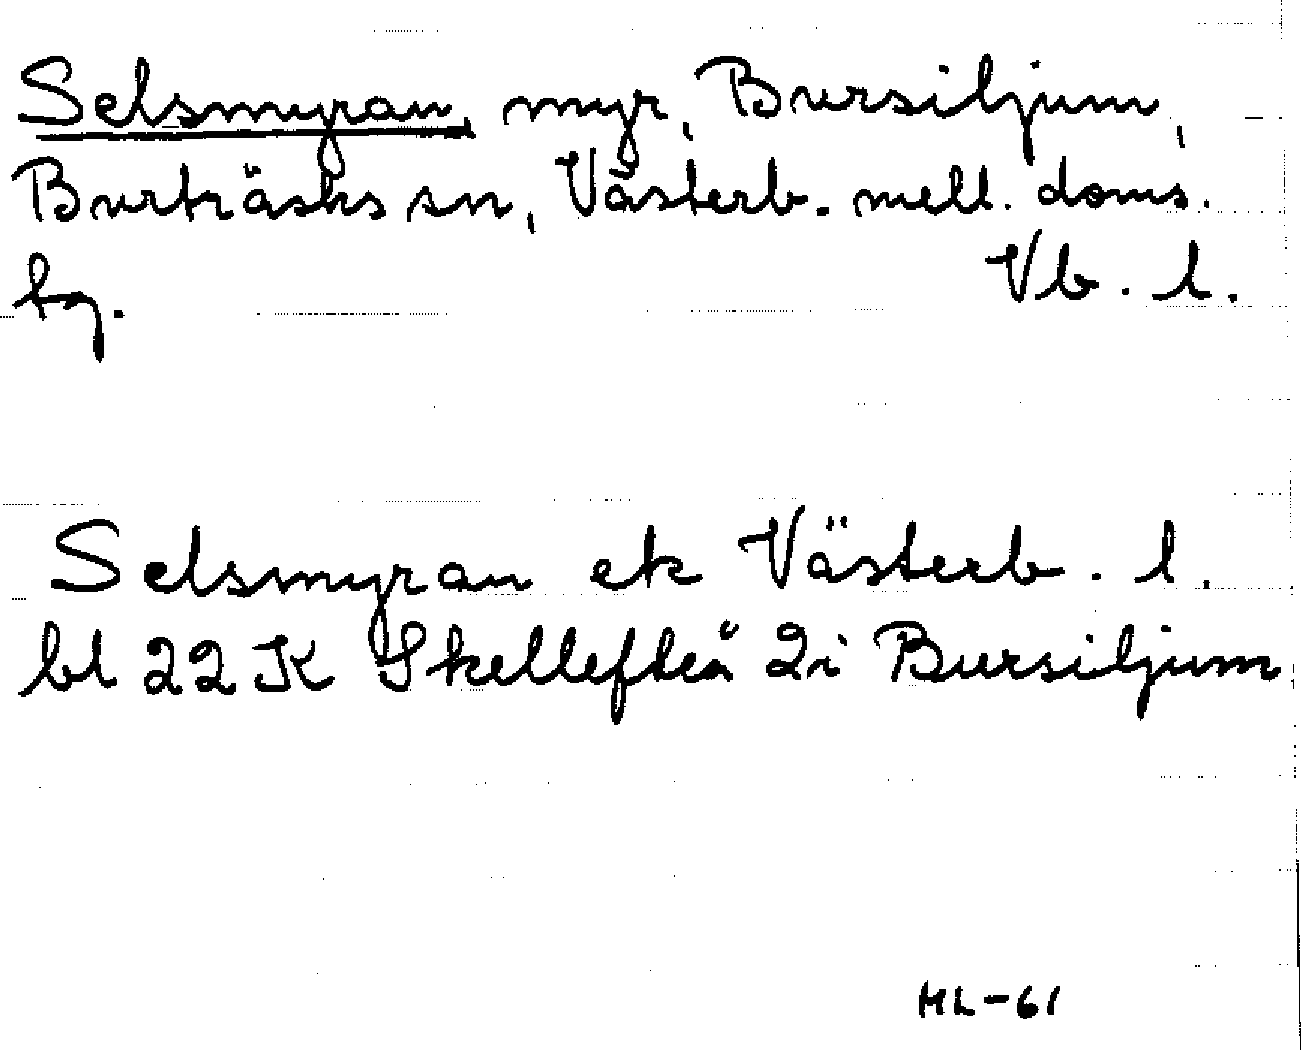 Selsmyran, myr, Bursiljum,
Burträsks sn, Västerb. mell. doms.
hg. Vb. l.
Selsmyran ek Västerb. l.
bl 22 K Skellefteå 2i Bursiljum
ML-61